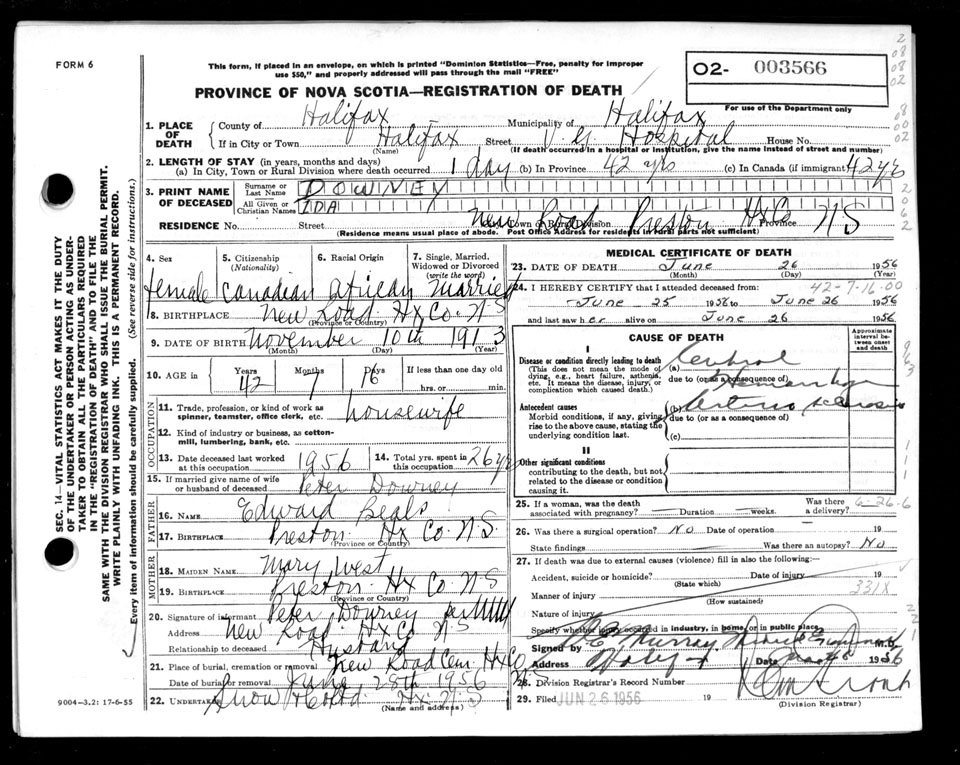 FORM 6
This form, if placed in an envelope, on which is printed "Dominion Statistics—Free, penalty for improper
use $50," and properly addressed will pass through the mail "FREE"
O2- 003566
PROVINCE OF NOVA SCOTIA—REGISTRATION OF DEATH
For use of the Department only
1. PLACE OF DEATH
County of Halifax Municipality of Halifax
If in City or Town Halifax Street V. G. Hospital House No.
(Name) (If death occurred in a hospital or institution, give the name instead of street and number)
2. LENGTH OF STAY (in years, months and days)
(a) In City, Town or Rural Division where death occurred 1 day (b) In Province 42 yrs (c) In Canada (if immigrant) 42 yrs
3. PRINT NAME OF DECEASED
Surname or Last Name DOWNEY
All Given or Christian Names IDA
RESIDENCE No. Street New Road Preston Hx Co N S
Town or Rural Division Province
(Residence means usual place of abode. Post Office Address for residents in rural parts not sufficient)
4. Sex 5. Citizenship (Nationality) 6. Racial Origin 7. Single, Married, Widowed or Divorced (write the word)
female Canadian African Married
8. BIRTHPLACE New Road Hx Co. N S
(Province or Country)
9. DATE OF BIRTH November 10th 1913
(Month) (Day) (Year)
10. AGE in Years Months Days If less than one day old
42 7 16 hrs. or min.
OCCUPATION
11. Trade, profession, or kind of work as spinner, teamster, office clerk, etc. housewife
12. Kind of industry or business, as cotton-mill, lumbering, bank, etc.
13. Date deceased last worked at this occupation 1956
14. Total yrs. spent in this occupation 26 yrs
15. If married give name of wife or husband of deceased Peter Downey
FATHER
16. NAME Edward Beals
17. BIRTHPLACE Preston Hx Co. N. S.
(Province or Country)
MOTHER
18. MAIDEN NAME Mary West
19. BIRTHPLACE Preston Hx Co N S
(Province or Country)
20. Signature of informant Peter Downey per
Address New Road Hx Co N S
Relationship to deceased Husband
21. Place of burial, cremation or removal New Road Cem Hx Co
Date of burial or removal June 28th 1956 N S
22. UNDERTAKER Snow & Co Ltd Hx N S
(Name and address)
MEDICAL CERTIFICATE OF DEATH
23. DATE OF DEATH June 26 1956
(Month) (Day) (Year)
24. I HEREBY CERTIFY that I attended deceased from: 42-7-16-00
June 25 1956 to June 26 1956
and last saw her alive on June 26 1956
CAUSE OF DEATH
Approximate interval between onset and death
I
Disease or condition directly leading to death
(This does not mean the mode of dying, e.g., heart failure, asthenia, etc. It means the disease, injury, or complication which caused death.)
(a) Cerebral
due to (or as a consequence of) Hemorrhage
Antecedent causes
Morbid conditions, if any, giving rise to the above cause, stating the underlying condition last.
(b) Arteriosclerosis
due to (or as a consequence of)
(c)
II
Other significant conditions
contributing to the death, but not related to the disease or condition causing it.
25. If a woman, was the death associated with pregnancy? Duration weeks. Was there a delivery? 6-26-6
26. Was there a surgical operation? No Date of operation 19
State findings Was there an autopsy? No
27. If death was due to external causes (violence) fill in also the following:
Accident, suicide or homicide? Date of injury 19
(State which)
Manner of injury 331X
(How sustained)
Nature of injury
Specify whether injury occurred in industry, in home, or in public place
Signed by Murray M.D.
Address Halifax Date 1956
28. Division Registrar's Record Number
29. Filed JUN 26 1956 19
(Division Registrar)
9004—3.2: 17-6-55
SEC. 14—VITAL STATISTICS ACT MAKES IT THE DUTY
OF THE UNDERTAKER OR PERSON ACTING AS UNDER-
TAKER TO OBTAIN ALL THE PARTICULARS REQUIRED
IN THE "REGISTRATION OF DEATH" AND TO FILE THE
SAME WITH THE DIVISION REGISTRAR WHO SHALL ISSUE THE BURIAL PERMIT.
WRITE PLAINLY WITH UNFADING INK. THIS IS A PERMANENT RECORD.
Every item of information should be carefully supplied. (See reverse side for instructions.)